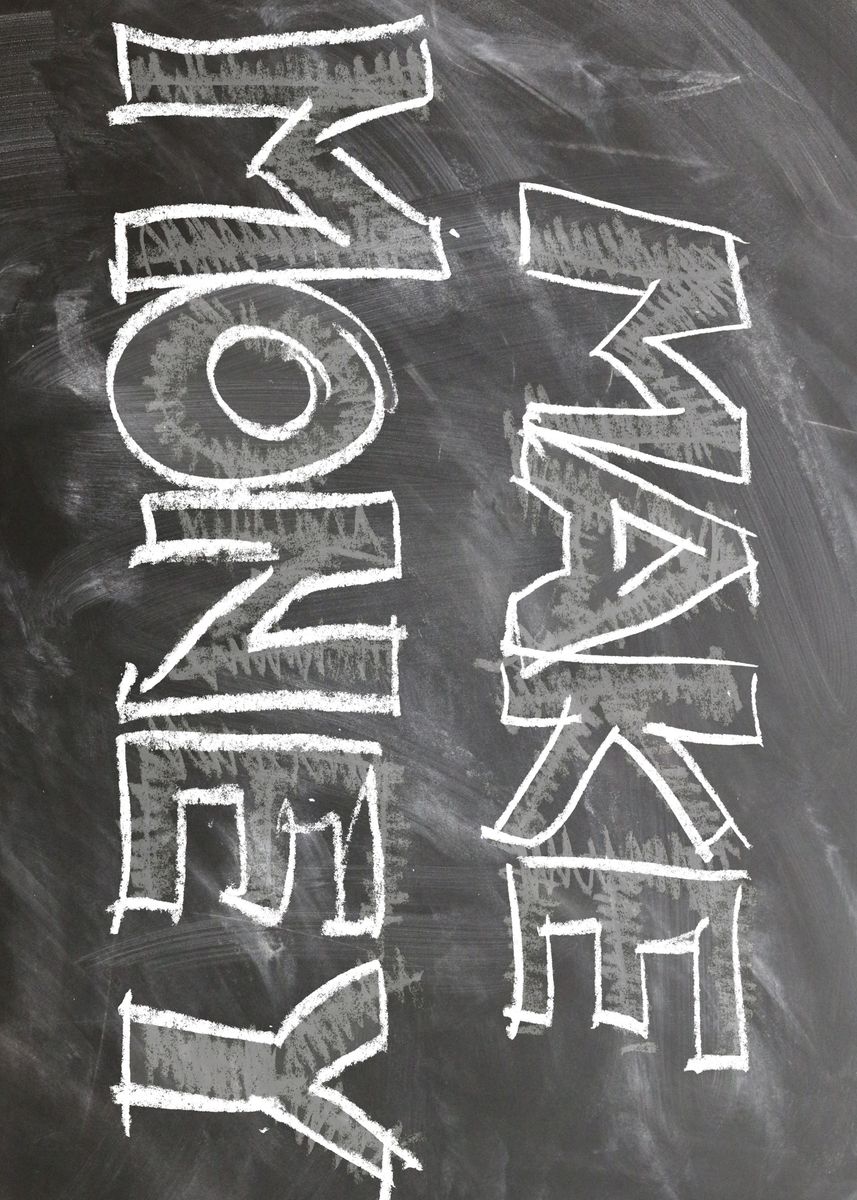 MAKE
MONEY